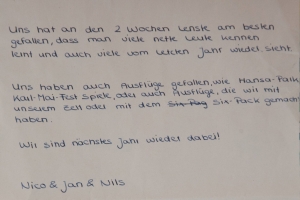 Uns hat an den 2 Wochen Lenste am besten
gefallen, dass man viele nette Leute kennen
lernt und auch viele vom letzten Jahr wieder sieht.
Uns haben auch Ausflüge gefallen, wie Hansa-Park
Karl-Mai-Fest Spiele, oder auch Ausflüge, die wir mit
unserem Zelt oder mit dem Six-Pag Six-Pack gemacht
haben.
Wir sind nächstes Jahr wieder dabei!
Nico & Jan & Nils